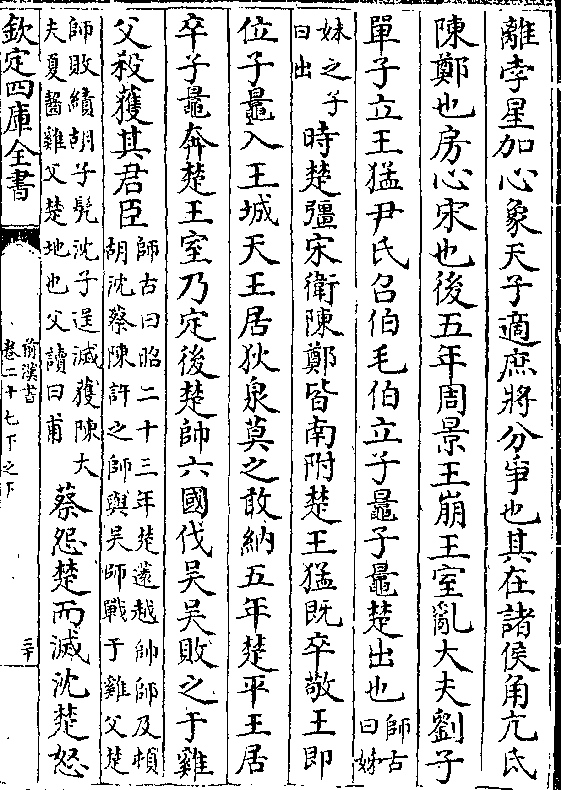 離孛星加心象天子適庶將分爭也其在諸侯角亢氐
陳鄭也房心宋也後五年周景王崩王室亂大夫劉子
單子立王猛尹氏召伯毛伯立子鼂子鼂楚出也師古曰姊
妹之子曰出時楚彊宋衛陳鄭皆南附楚王猛既卒敬王即
位子鼂入王城天王居狄泉莫之敢納五年楚平王居
卒子鼂奔楚王室乃定後楚帥六國伐吳吳敗之于雞
父殺獲其君臣師古曰昭二十三年楚薳越帥師及頓胡沈蔡陳許之師與吳師戰于雞父楚
師敗績胡子髡沈子逞滅獲陳大夫夏齧雞父楚地也父讀曰甫蔡怨楚而滅沈楚怒
欽定四庫全書
前漢書
卷二十七下之下
二十